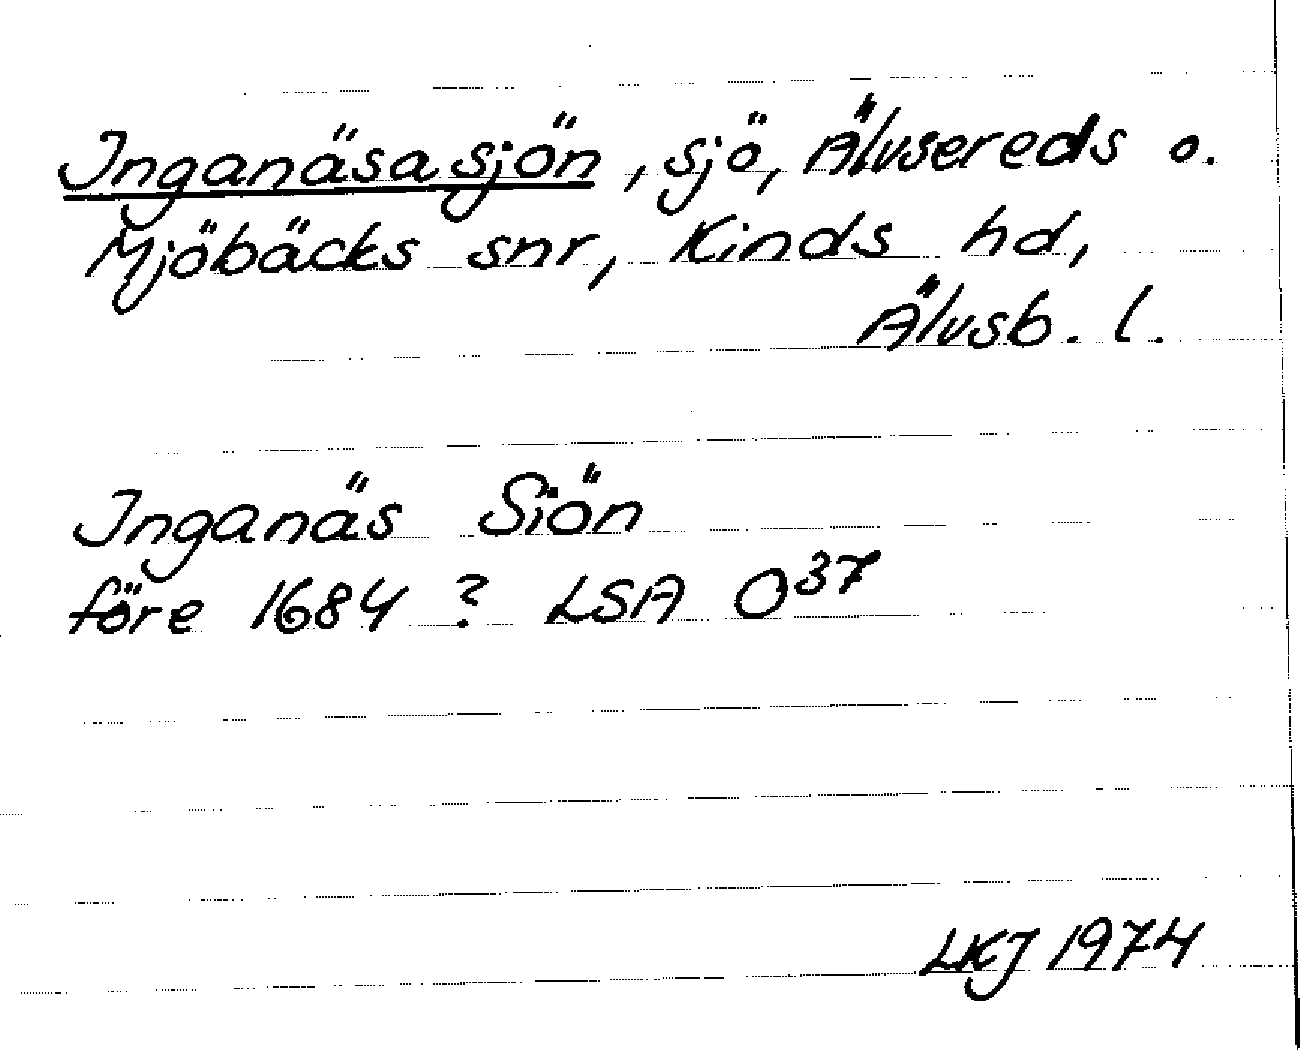 Inganäsasjön, sjö, Älvsereds o.
Mjöbäcks snr, Kinds hd,
Älvsb. l.
Inganäs Siön
före 1684? LSA O37
LKJ 1974